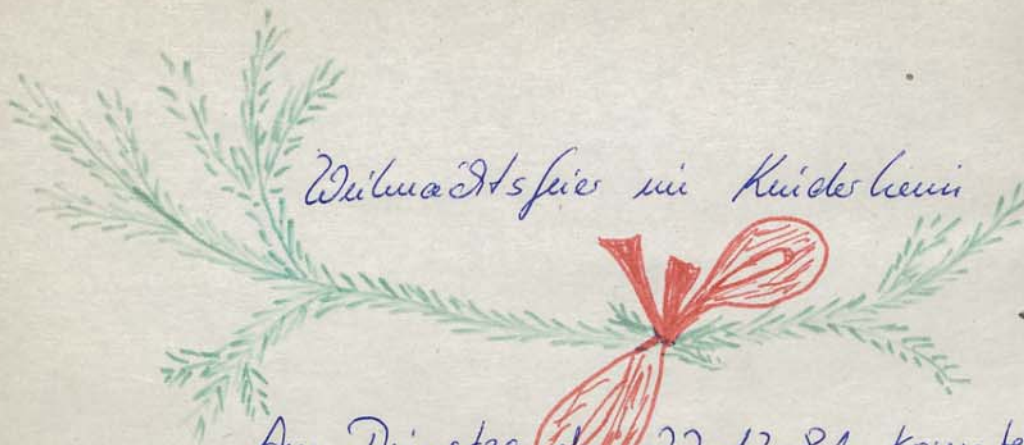 Weihnachtsfeier im Kinderheim
Am Dienstag 22.12.81